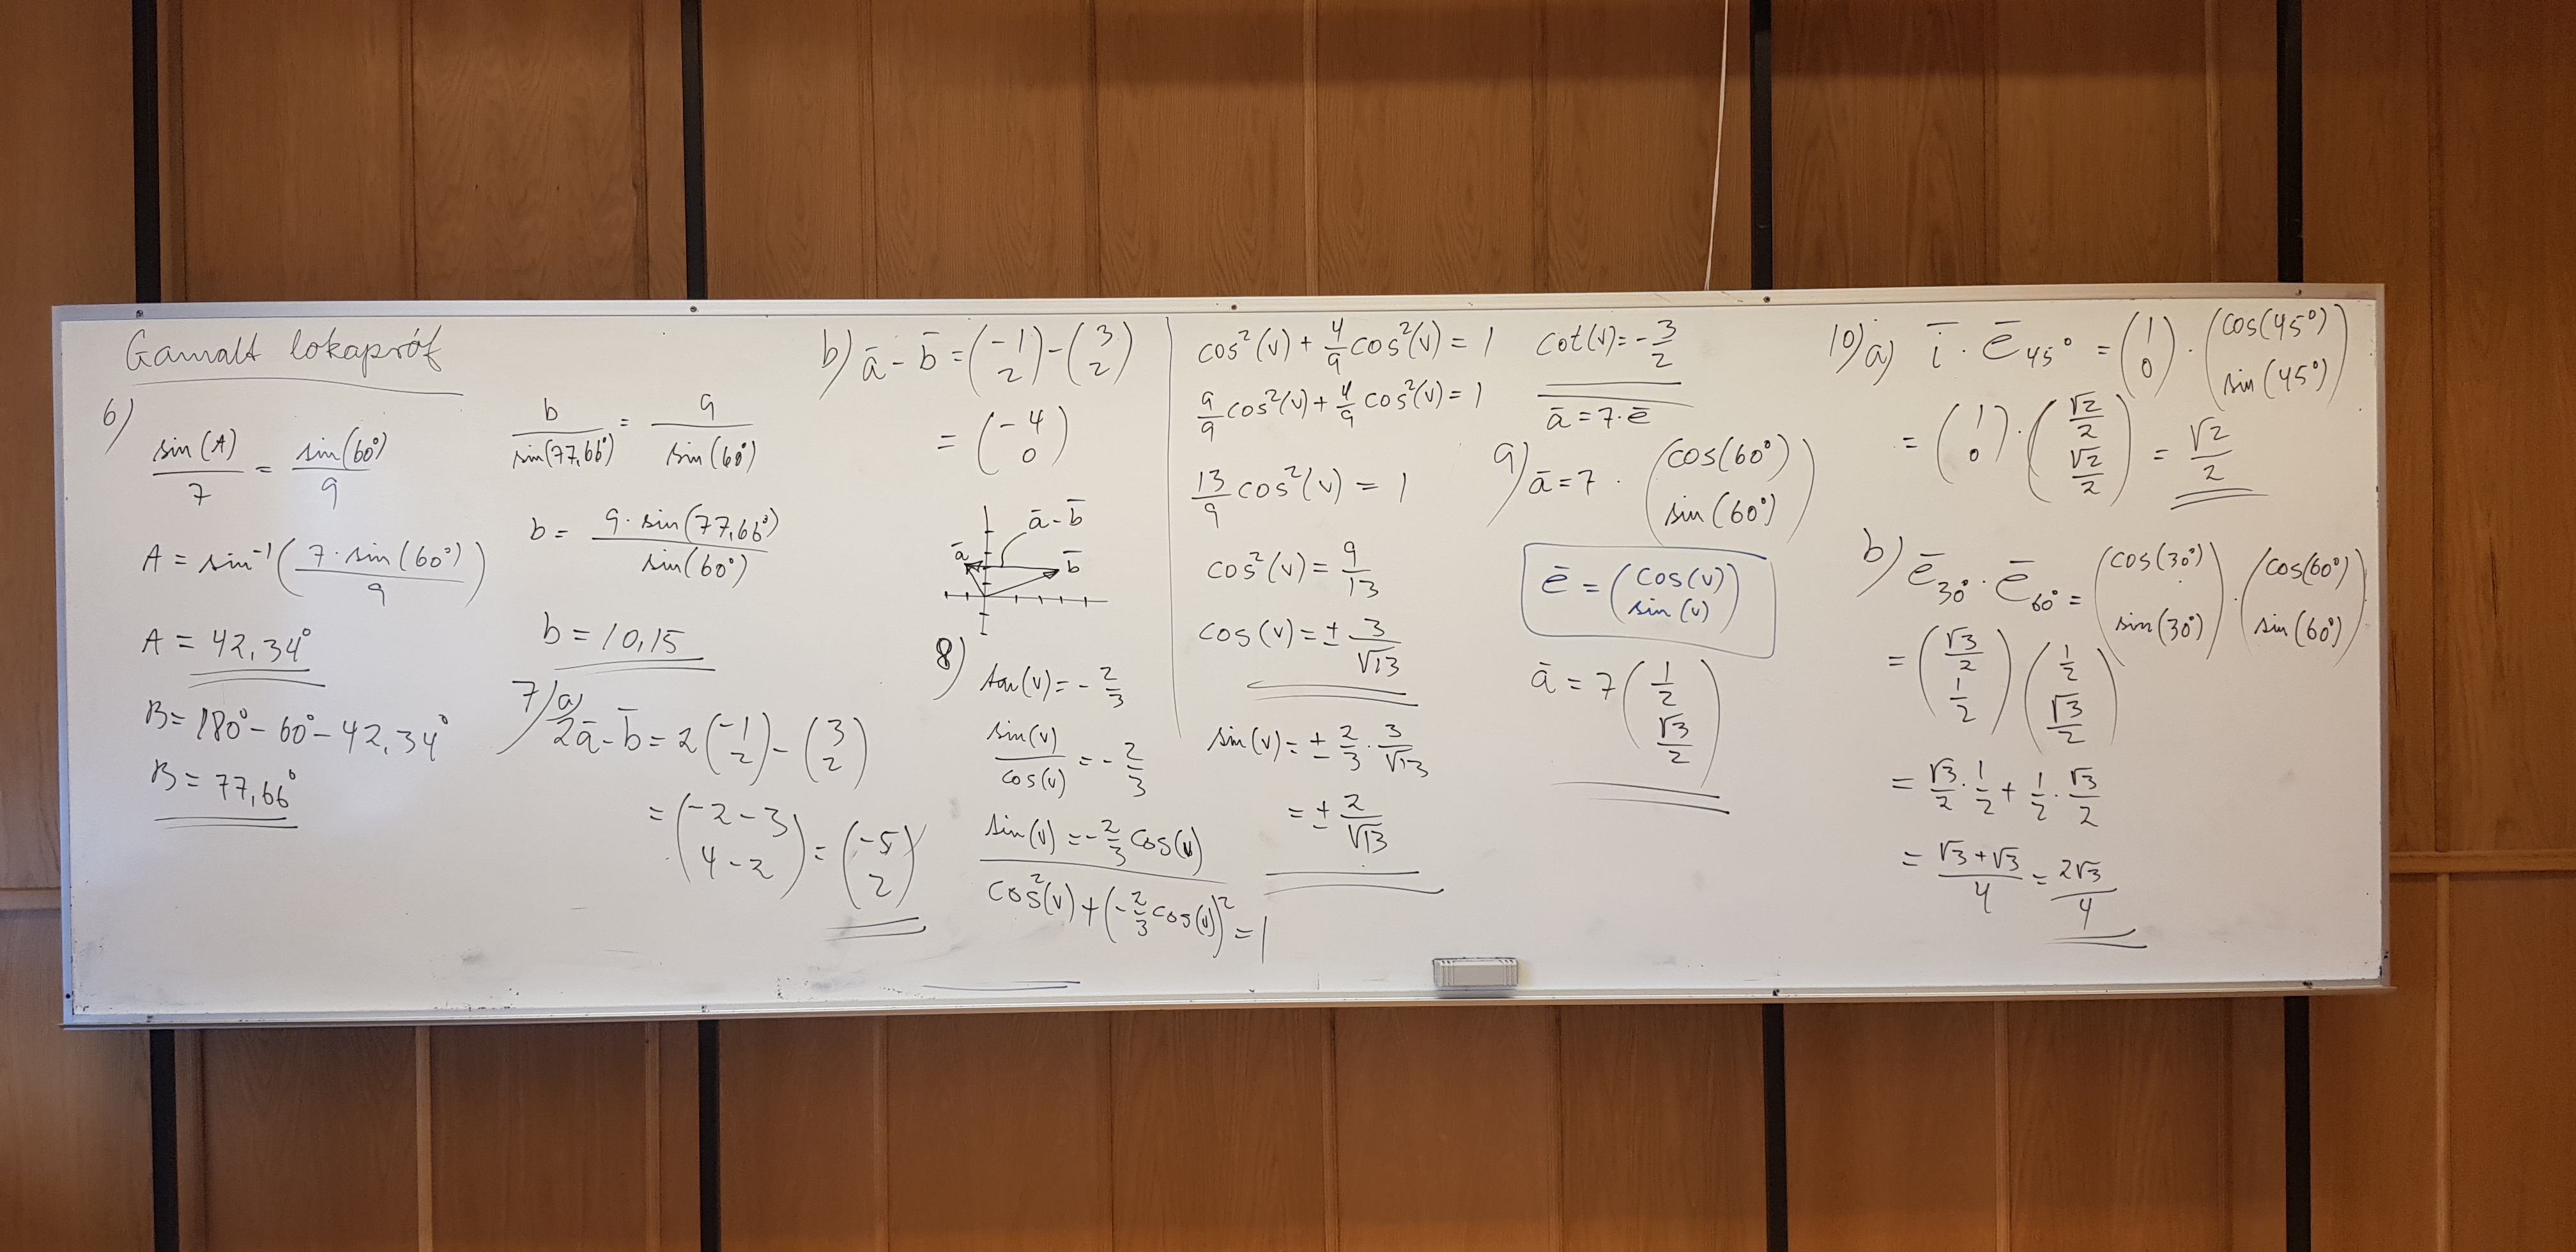 Gamalt lokapróf
6)
sin(A)/7 = sin(60°)/9
A = sin⁻¹(7·sin(60°)/9)
A = 42,34°
B = 180° - 60° - 42,34°
B = 77,66°
b/sin(77,66°) = 9/sin(60°)
b = 9·sin(77,66°)/sin(60°)
b = 10,15
7) a)
2a̅ - b̅ = 2(-1 2) - (3 2)
= (-2-3 4-2) = (-5 2)
b) a̅ - b̅ = (-1 2) - (3 2)
= (-4 0)
a̅ - b̅
a̅
b̅
8)
tan(v) = -2/3
sin(v)/cos(v) = -2/3
sin(v) = -2/3 cos(v)
cos²(v) + (-2/3 cos(v))² = 1
cos²(v) + 4/9 cos²(v) = 1
9/9 cos²(v) + 4/9 cos²(v) = 1
13/9 cos²(v) = 1
cos²(v) = 9/13
cos(v) = ± 3/√13
sin(v) = ± 2/3 · 3/√13
= ± 2/√13
cot(v) = -3/2
a̅ = 7·e̅
9) a̅ = 7 · (cos(60°) sin(60°))
e̅ = (cos(v) sin(v))
a̅ = 7 (1/2 √3/2)
10) a) i̅ · e̅₄₅° = (1 0) · (cos(45°) sin(45°))
= (1 0) · (√2/2 √2/2) = √2/2
b) e̅₃₀° · e̅₆₀° = (cos(30°) sin(30°)) · (cos(60°) sin(60°))
= (√3/2 1/2) (1/2 √3/2)
= √3/2 · 1/2 + 1/2 · √3/2
= √3+√3/4 = 2√3/4